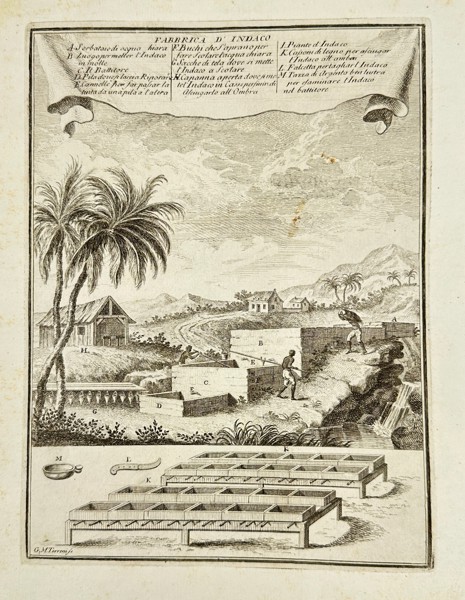 FABBRICA D'INDACO
A Serbatoio di acqua chiara
B Luogo per metter l'Indaco
in molle
C Il Battitore
D
E Cannelle per far passar la
tinta da una pila a l'altra
F Buchi che s'aprano per
fare scolar l'acqua chiara
G Sacche di tela dove si mette
l'Indaco a scolare
H Capanna aperta dove si mette
l'Indaco in Cassoni per
asciugarlo all'Ombra
I Piante d'Indaco
K Cassoni di legno per asciugar
l'Indaco all'ombra
L Falcetta per tagliar l'Indaco
M Tazza di Argento ben lustra
per esaminare l'Indaco
nel battitore
A
B
I
H
C
E
D
F
G
M
L
K
K